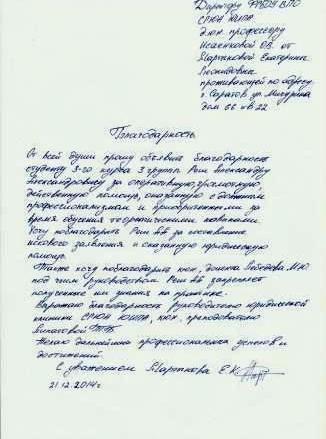 Директору ФГБОУ ВПО
СГЮА ЮИПА
д.ю.н. профессору
Исаенковой О.В. от
Мартыновой Екатерины
проживающей по адресу
г. Саратов ул. Мичурина
дом 66 кв 22
Благодарность
От всей души прошу объявить благодарность
студенту 3-го курса 3 группы Реш Александру
Александровичу за оперативную, грамотную,
действенную помощь, оказанную с должным
профессионализмом и приобретенными за
время обучения теоретическими навыками.
Хочу поблагодарить Реш АА за составление
искового заявления и оказанную юридическую
помощь.
Также хочу поблагодарить кюн, доцента Лебедева М.Ю
под чьим руководством Реш АА закрепляет
полученные им знания на практике.
Выражаю благодарность руководителю юридической
клиники СГЮА ЮИПА, кюн, преподавателю
Желаю дальнейших профессиональных успехов и
достижений.
С уважением Мартынова Е.
21.12.2014г